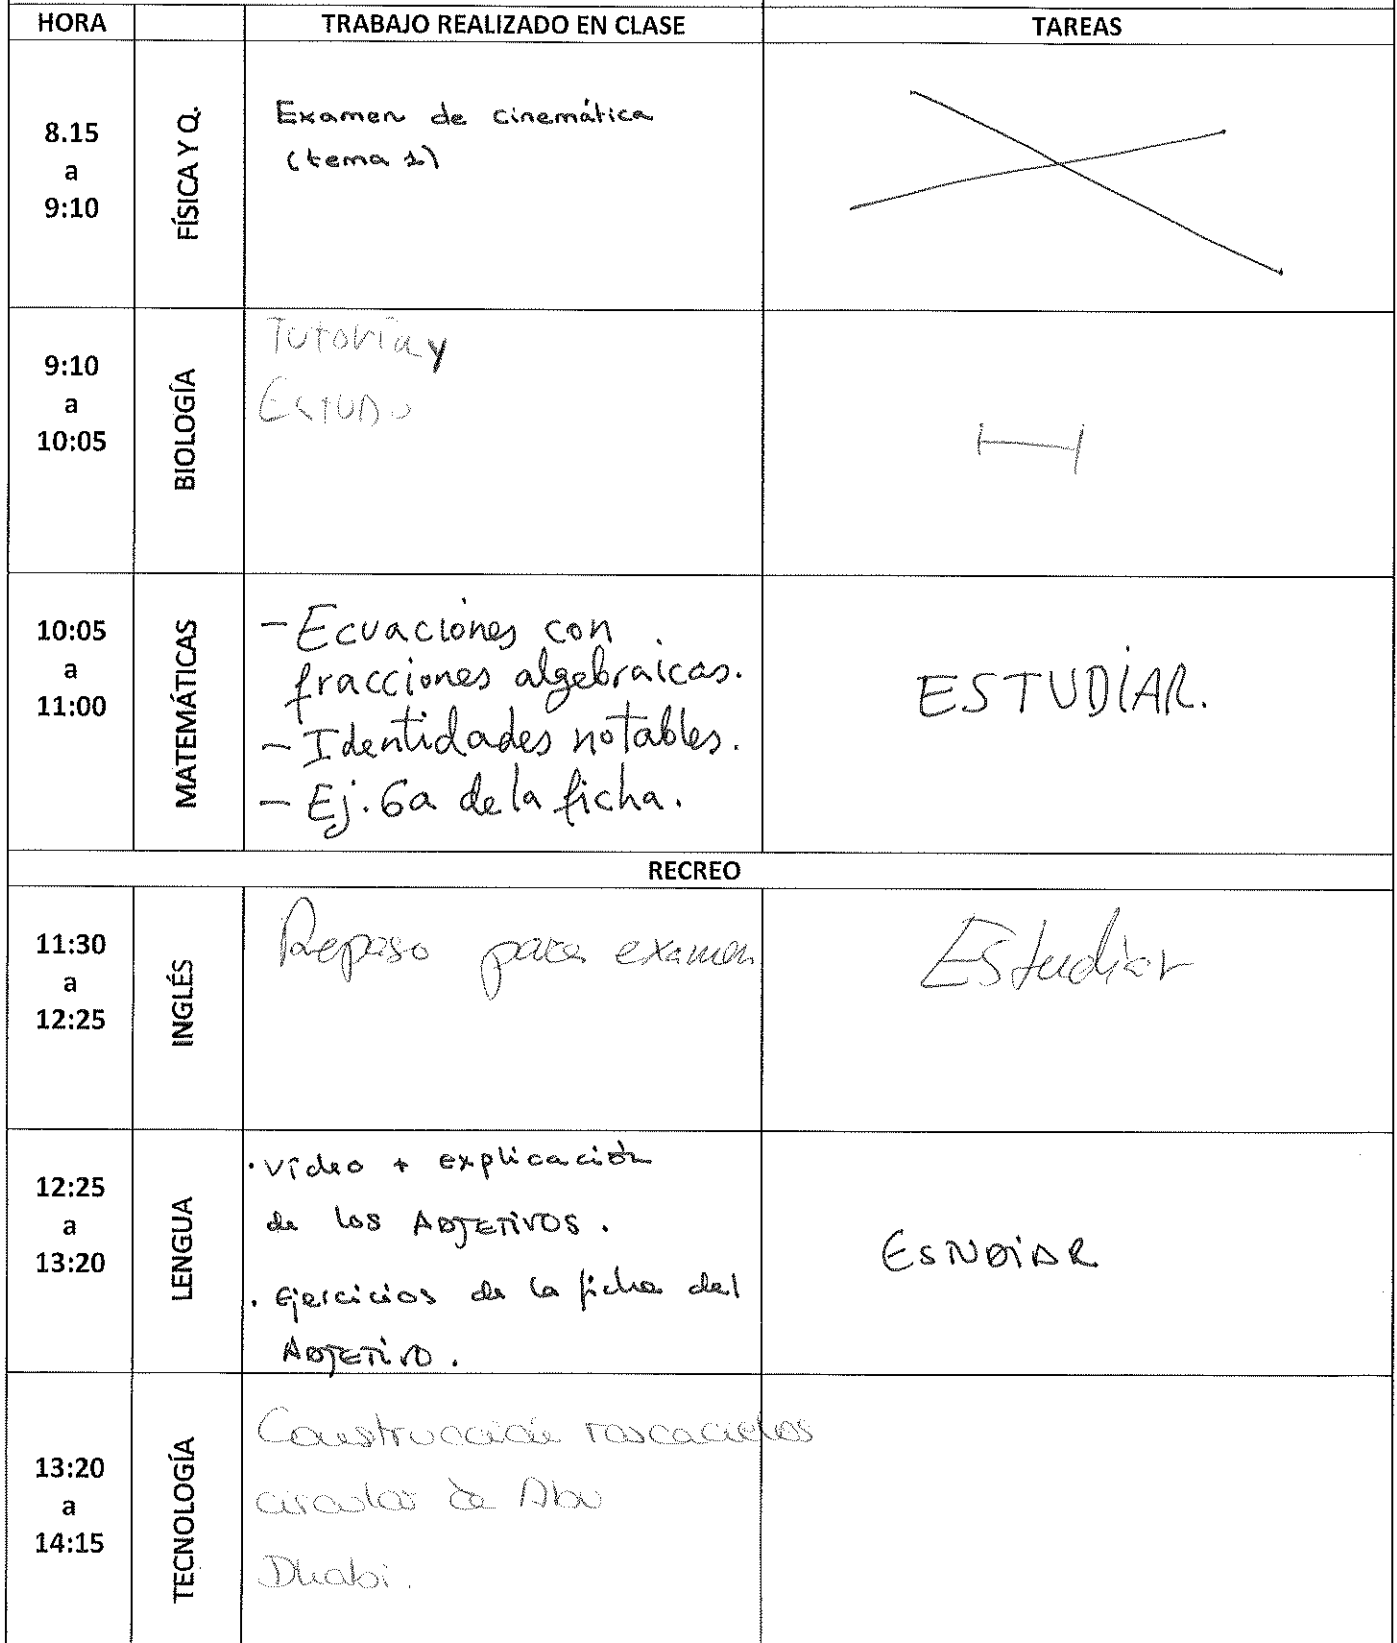 HORA TRABAJO REALIZADO EN CLASE TAREAS
8.15
a
9:10
FÍSICA Y Q.
Examen de cinemática
(tema 1)
9:10
a
10:05
BIOLOGÍA
Tutoría y
Estudio
10:05
a
11:00
MATEMÁTICAS
- Ecuaciones con
fracciones algebraicas.
- Identidades notables.
- Ej. 6a de la ficha.
ESTUDIAR.
RECREO
11:30
a
12:25
INGLÉS
Repaso para examen
Estudiar
12:25
a
13:20
LENGUA
· Vídeo + explicación
de los ADJETIVOS.
· Ejercicios de la ficha del
ADJETIVO.
ESTUDIAR
13:20
a
14:15
TECNOLOGÍA
Construcción rascacielos
circular de Abu
Dhabi.